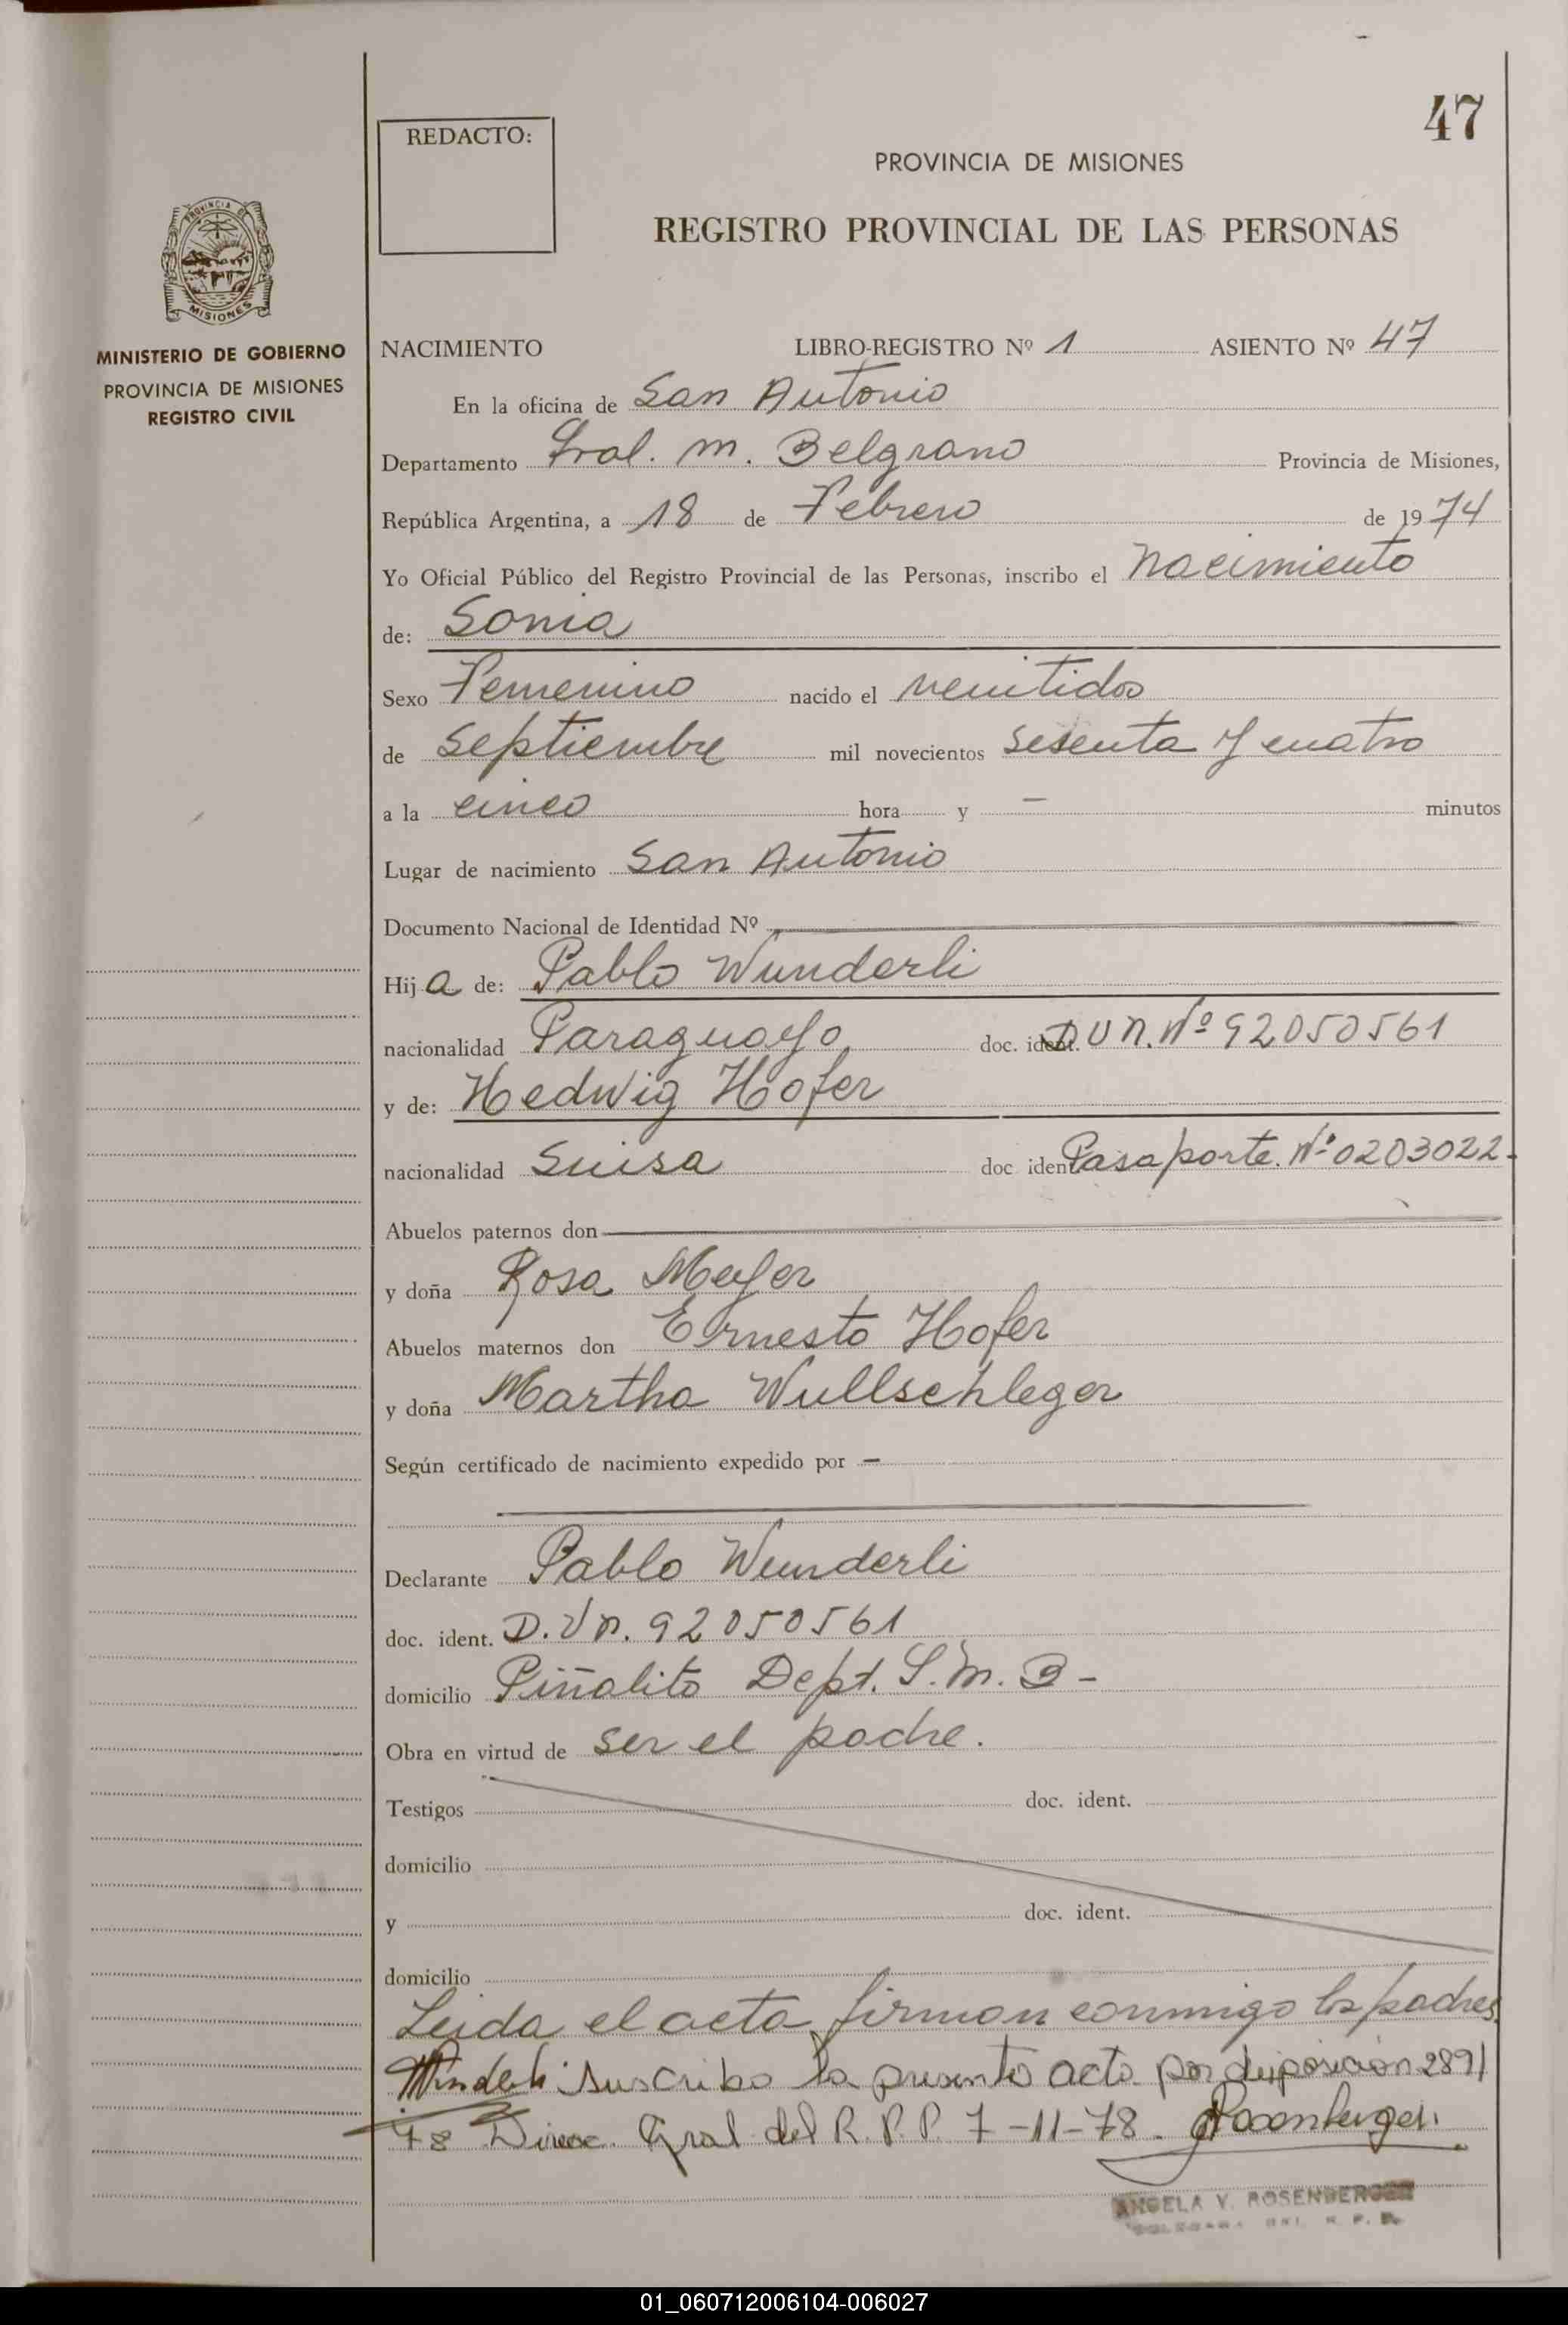 47
REDACTO:
PROVINCIA DE MISIONES
REGISTRO PROVINCIAL DE LAS PERSONAS
PROVINCIA DE
MISIONES
MINISTERIO DE GOBIERNO
PROVINCIA DE MISIONES
REGISTRO CIVIL
NACIMIENTO LIBRO-REGISTRO Nº 1 ASIENTO Nº 47
En la oficina de San Antonio
Departamento Gral. M. Belgrano Provincia de Misiones,
República Argentina, a 18 de Febrero de 1974
Yo Oficial Público del Registro Provincial de las Personas, inscribo el nacimiento
de: Sonia
Sexo Femenino nacido el venitidos
de septiembre mil novecientos sesenta y cuatro
a la cinco hora y – minutos
Lugar de nacimiento San Antonio
Documento Nacional de Identidad Nº
Hija de: Pablo Wunderli
nacionalidad Paraguayo doc. ident. D U N. Nº 92050561
y de: Hedwig Hofer
nacionalidad Suisa doc ident Pasaporte. Nº 0203022.
Abuelos paternos don
y doña Rosa Meyer
Abuelos maternos don Ernesto Hofer
y doña Martha Wullschleger
Según certificado de nacimiento expedido por –
Declarante Pablo Wunderli
doc. ident. D.U n. 92050561
domicilio Piñalito Dept. G.M.B-
Obra en virtud de ser el padre.
Testigos doc. ident.
domicilio
y doc. ident.
domicilio
Leida el acta, firman conmigo los padres.
Wunderli suscribo la presente acta por disposición 2891
78 Direcc. Gral del R.P.P. 7-11-78. Rosenberger.
ANGELA V. ROSENBERGER
R. P. P.
01_060712006104-006027